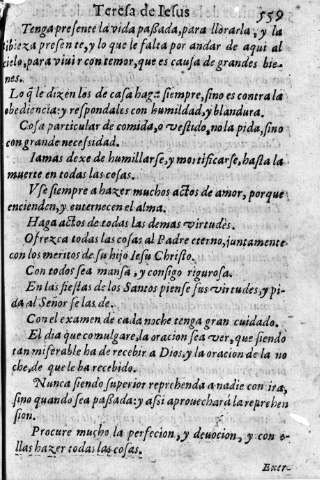 Teresa de Iesus 559
Tenga presente la vida paßada, para llorarla, y la
tibieza presente, y lo que le falta por andar de aqui al
cielo, para viuir con temor, que es causa de grandes bie-
nes.
Lo q̃ le dizen los de casa haga siempre, sino es contra la
obediencia: y respondales con humildad, y blandura.
Cosa particular de comida, o vestido, no la pida, sino
con grande necessidad.
Iamas dexe de humillarse, y mortificarse, hasta la
muerte en todas las cosas.
Vse siempre a hazer muchos actos de amor, porque
encienden, y enternecen el alma.
Haga actos de todas las demas virtudes.
Ofrezca todas las cosas al Padre eterno, juntamente
con los meritos de su hijo Iesu Christo.
Con todos sea mansa, y consigo rigurosa.
En las fiestas de los Santos piense sus virtudes, y pi-
da al Señor se las de.
Con el examen de cada noche tenga gran cuidado.
El dia que comulgare, la oracion sea ver, que siendo
tan miserable ha de recebir a Dios, y la oracion de la no
che, de que le ha recebido.
Nunca siendo superior reprehenda a nadie con ira,
sino quando sea paßada: y assi aprouechará la reprehen
sion.
Procure mucho la perfecion, y deuocion, y con e-
llas hazer todas las cosas.
Exer-